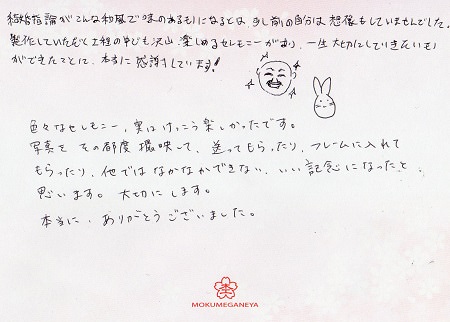 結婚指輪がこんな和風で味のあるものになるとは、少し前の自分は想像もしていませんでした。
製作していただく工程の中でも沢山楽しめるセレモニーがあり、一生大切にしていきたいもの
ができたことに、本当に感謝しています!
色々なセレモニー、実はけっこう楽しかったです。
写真をその都度撮映して、送ってもらったり、フレームに入れて
もらったり、他ではなかなかできない、いい記念になったと
思います。大切にします。
本当に、ありがとうございました。
MOKUMEGANEYA